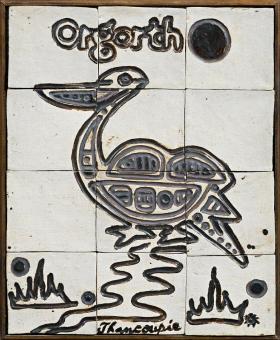 Orgorth
Thancoupie